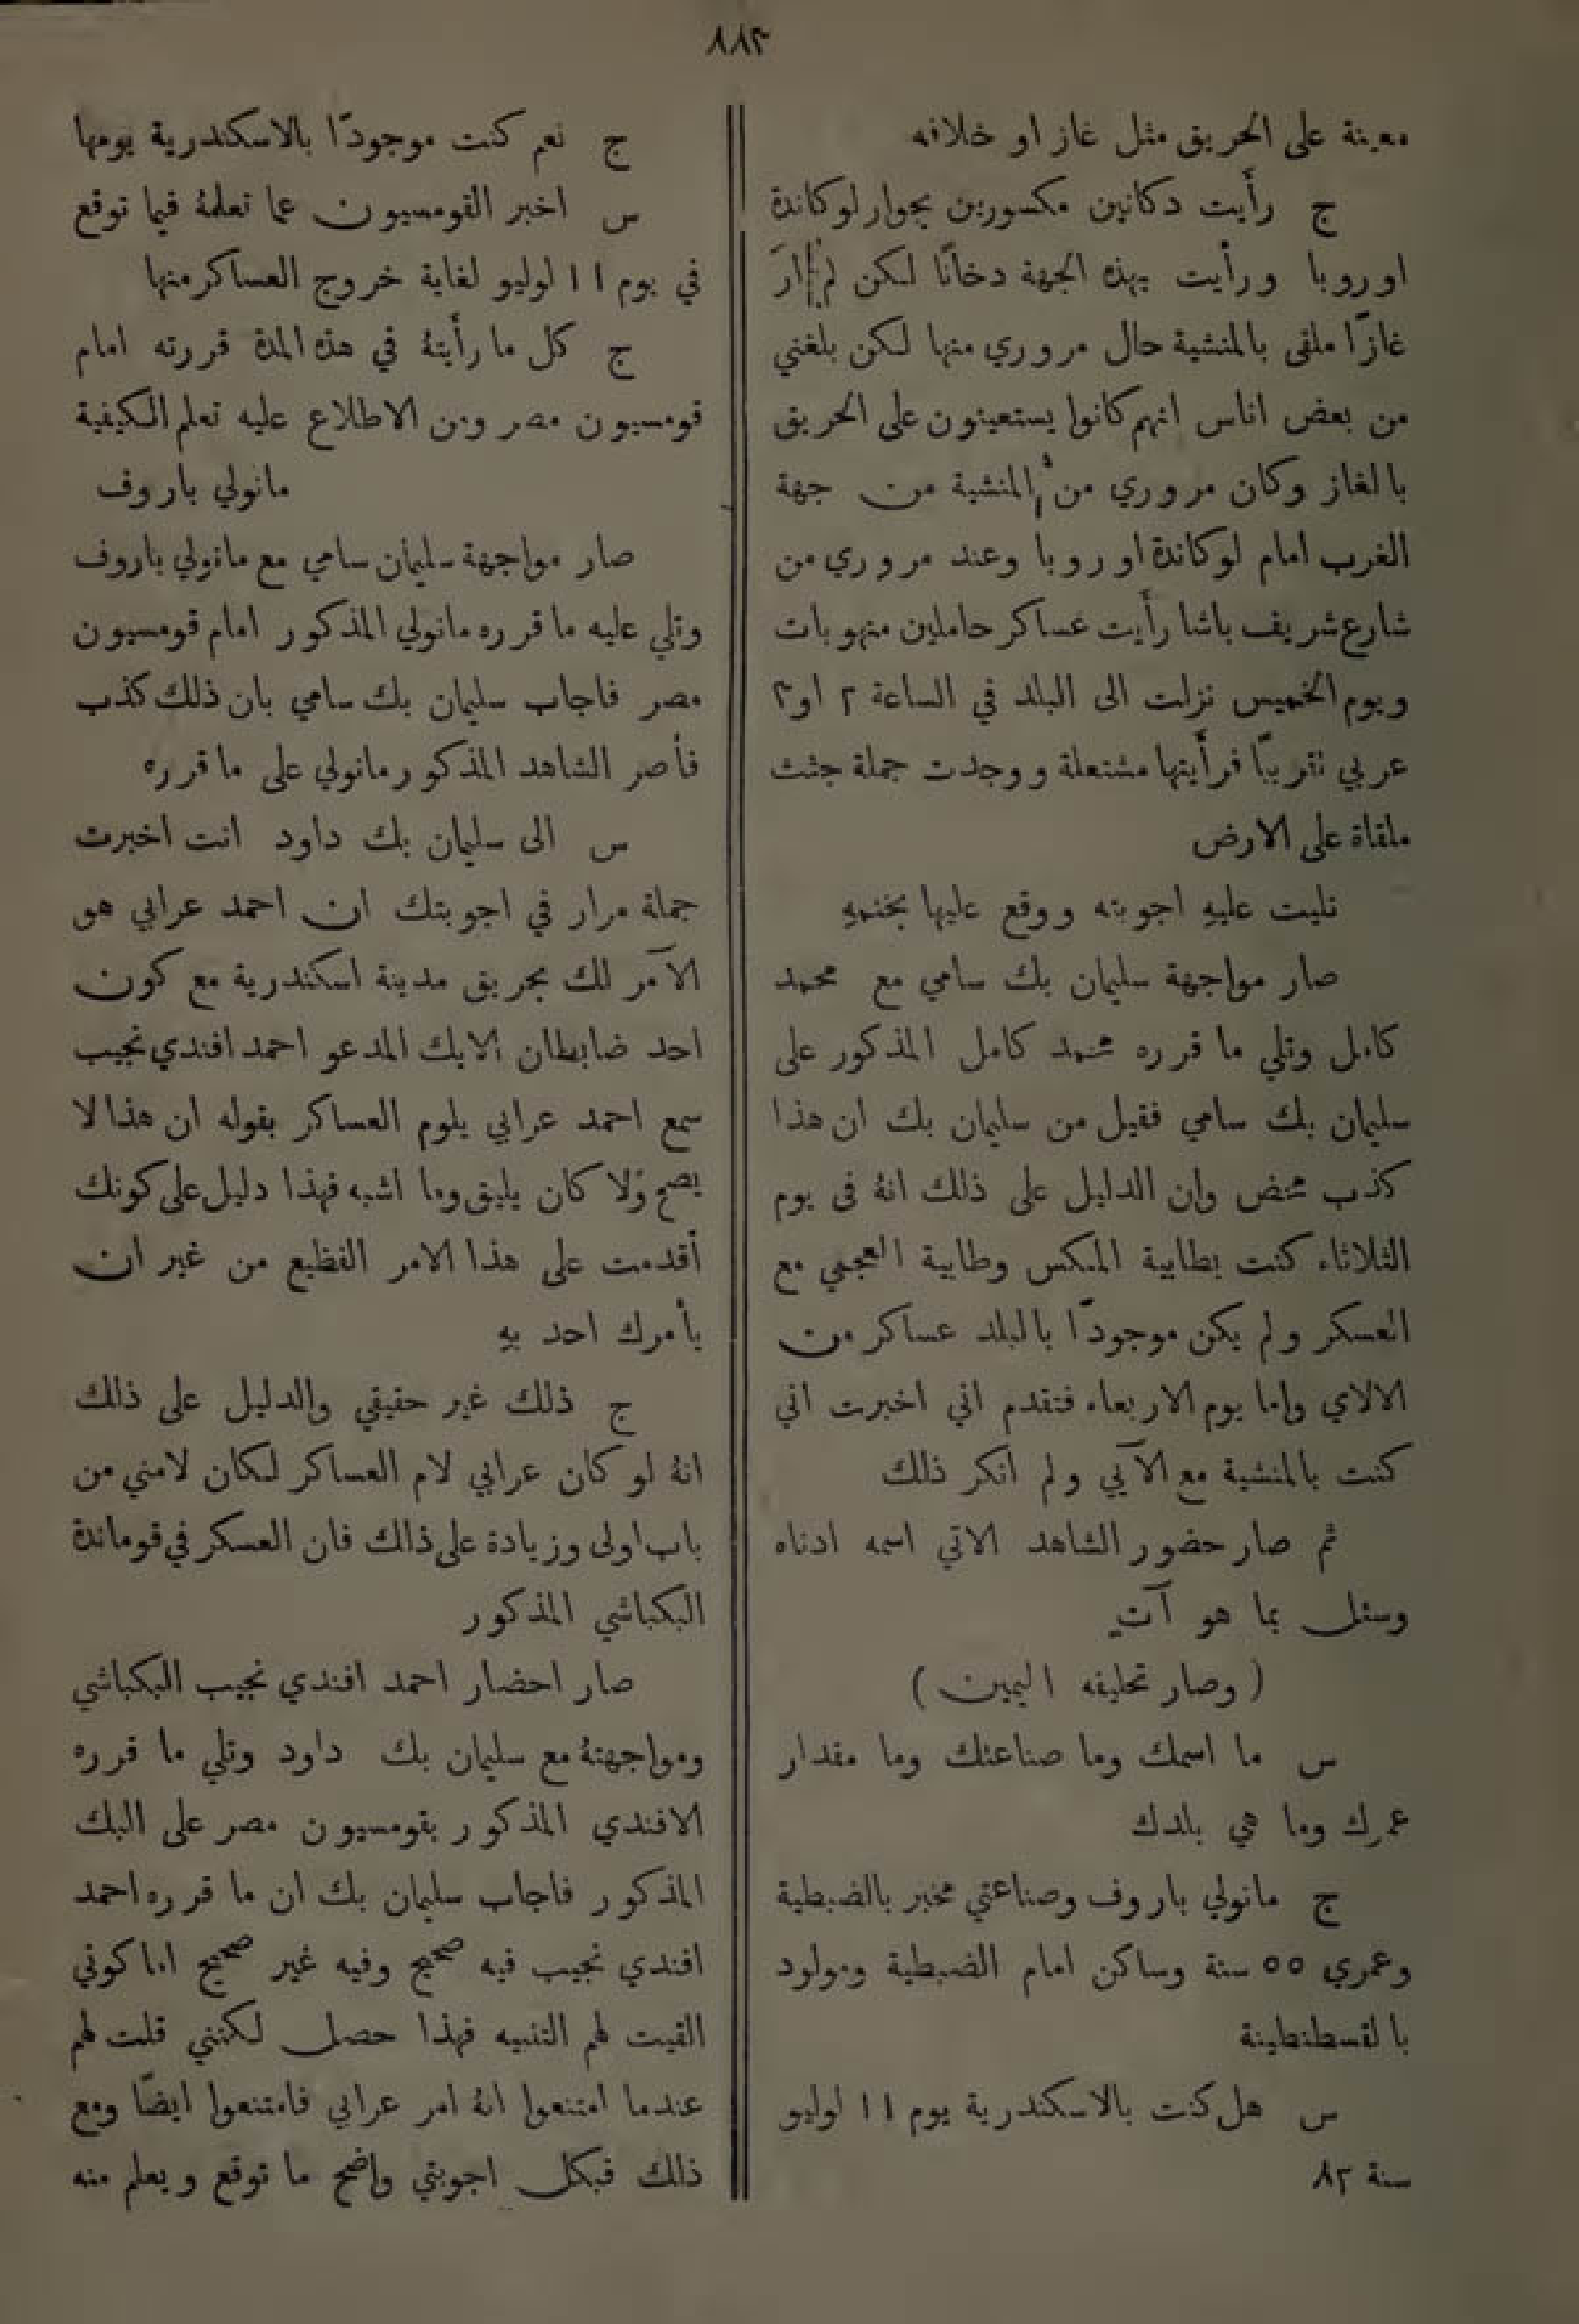 ٨٨٣
معينة على الحريق مثل غاز او خلافه
ج رأيت دكانين مكسورين بجوار لوكاندة
اوروبا ورأيت بهذه الجهة دخانًا لكن لم ارَ
غازًا ملقى بالمنشية حال مروري منها لكن بلغني
من بعض اناس انهم كانوا يستعينون على الحريق
بالغاز وكان مروري من المنشية من جهة
الغرب امام لوكاندة اوروبا وعند مروري من
شارع شريف باشا رأيت عساكر حاملين منهوبات
ويوم الخميس نزلت الى البلد في الساعة ٢ او ٣
عربي تقريبًا فرأيتها مشتعلة ووجدت جملة جثث
ملقاة على الارض
تليت عليهِ اجوبته ووقع عليها بختمهِ
صار مواجهة سليمان بك سامي مع محمد
كامل وتلي ما قرره محمد كامل المذكور على
سليمان بك سامي فقيل من سليمان بك ان هذا
كذب محض وان الدليل على ذلك انهُ فى يوم
الثلاثاء كنت بطابية المكس وطابية العجمي مع
العسكر ولم يكن موجودًا بالبلد عساكر من
الالاي واما يوم الاربعاء فتقدم اني اخبرت اني
كنت بالمنشية مع الآيي ولم انكر ذلك
ثم صار حضور الشاهد الاتي اسمه ادناه
وسئل بما هو آتٍ
( وصار تحليفه اليمين )
س ما اسمك وما صناعتك وما مقدار
عمرك وما هي بلدك
ج مانولي باروف وصناعتي مخبر بالضبطية
وعمري ٥٥ سنة وساكن امام الضبطية ومولود
بالقسطنطينة
س هل كنت بالاسكندرية يوم ١١ لوليو
سنة ٨٢
ج نعم كنت موجودًا بالاسكندرية يومها
س اخبر القومسيون عما تعلمهُ فيما توقع
في يوم ١١ لوليو لغاية خروج العساكر منها
ج كل ما رأيتهُ في هذه المدة قررته امام
قومسيون مصر ومن الاطلاع عليه تعلم الكيفية
مانولي باروف
صار مواجهة سليمان سامي مع مانولي باروف
وتلي عليه ما قرره مانولي المذكور امام قومسيون
مصر فاجاب سليمان بك سامي بان ذلك كذب
فأصر الشاهد المذكور مانولي على ما قرره
س الى سليمان بك داود انت اخبرت
جملة مرار في اجوبتك ان احمد عرابي هو
الآمر لك بحريق مدينة اسكندرية مع كون
احد ضابطان الايك المدعو احمد افندي نجيب
سمع احمد عرابي يلوم العساكر بقوله ان هذا لا
يصح ولا كان يليق وما اشبه فهذا دليل على كونك
أقدمت على هذا الامر الفظيع من غير ان
يأمرك احد بهِ
ج ذلك غير حقيقي والدليل على ذلك
انهُ لو كان عرابي لام العساكر لكان لامني من
باب اولى وزيادة على ذلك فان العسكر في قوماندة
البكباشي المذكور
صار احضار احمد افندي نجيب البكباشي
ومواجهتهُ مع سليمان بك داود وتلي ما قرره
الافندي المذكور بقومسيون مصر على البك
المذكور فاجاب سليمان بك ان ما قرره احمد
افندي نجيب فيه صحيح وفيه غير صحيح اما كوني
القيت لهم التنبيه فهذا حصل لكنني قلت لهم
عندما امتنعوا انهُ امر عرابي فامتنعوا ايضًا ومع
ذلك فبكل اجوبتي واضح ما توقع ويعلم منه